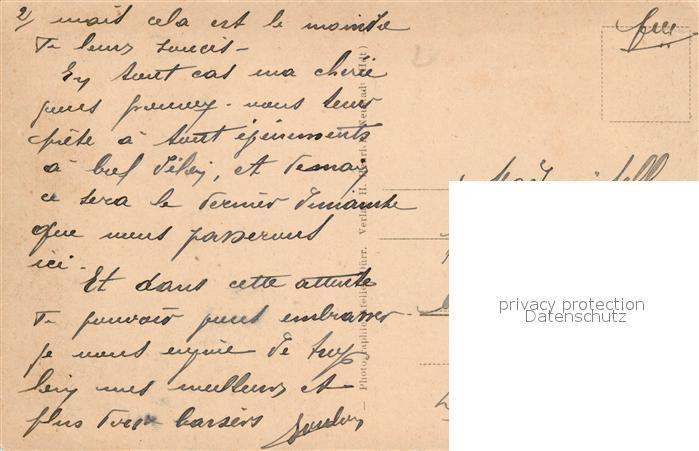 2/ mais cela est le moindre
de leurs soucis -
En tout cas ma chérie
vous pouvez - vous tenir
prête à tout événements
à bref délai, et demain
ce sera le dernier dimanche
que nous passerons
ici.
Et dans cette attente
de pouvoir vous embrasser
je vous envoie de trop
loin mes meilleurs et
plus doux baisers
privacy protection
Datenschutz